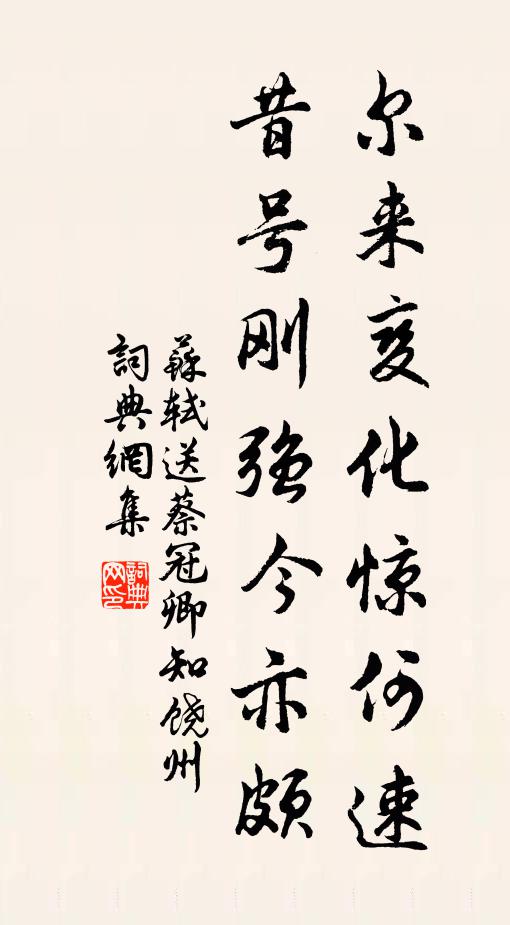 尔来变化惊何速
昔号刚强今亦颇
蘇轼送蔡冠卿知饶州
詞典網集
詞典网印